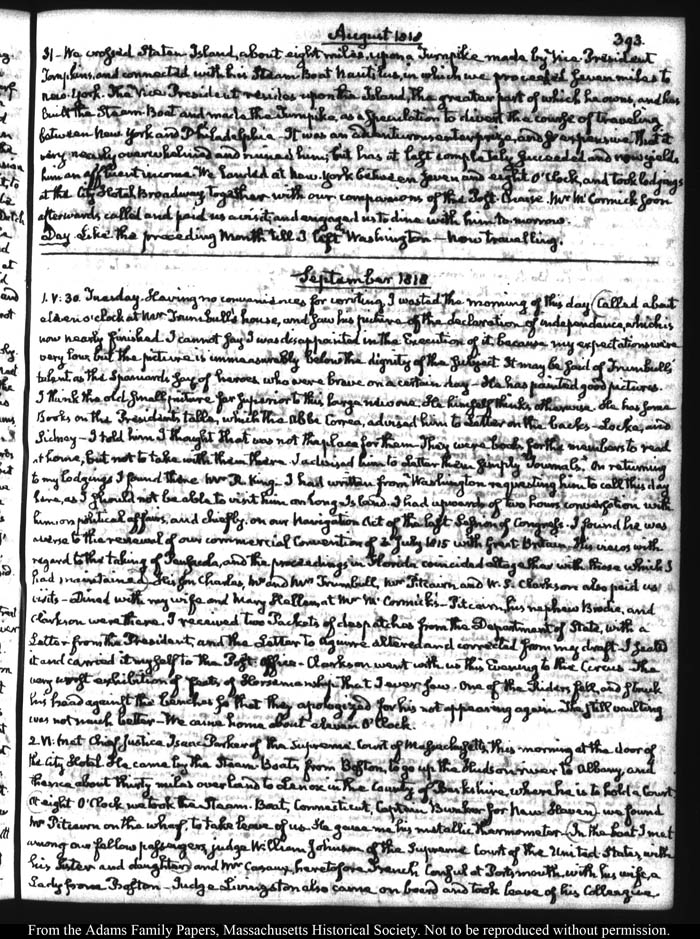 August 1818
393.
31- We crossed Staten Island, about eight miles, upon a Turnpike made by Vice-President
Tompkins, and connected with his Steam Boat Nautilus, in which we proceeded seven miles to
New-York. The Vice President resides upon the Island, the greater part of which he owns, and has
built the Steam-Boat and made the Turnpike, as a speculation to divert the course of traveling
between New York and Philadelphia. It was an adventurous enterprize, and so expensive that it
very nearly overwhelmed and ruined him; but has at last completely succeeded and now yields
him an affluent income. We landed at New York between seven and eight O'Clock, and took lodgings
at the City Hotel Broadway, together with our companions of the Post-Chaise. Mr McCormick soon
afterwards called and paid us a visit; and engaged us to dine with him to-morrow.
Day. Like the preceding Month till I left Washington — now travelling.
September 1818
1. V: 30. Tuesday. Having no conveniences for writing, I wasted the morning of this day. Called about
eleven o'clock at Mr Trumbull's house, and saw his picture of the declaration of independence, which is
now nearly finished. I cannot say I was disappointed in the execution of it, because my expectations were
very low; but the picture is immeasurably below the dignity of the subject. It may be said of Trumbull's
talent as the Spaniards say of heroes who were brave on a certain day — He has painted good pictures.
I think the old small picture far superior to this large new one. He himself thinks otherwise. He has some
Books on the President's table, which the Abbe Correa, advised him to letter on the backs — Locke, and
Sidney — I told him I thought that was not the place for them. They were books for the members to read
at home, but not to take with them there. I advised him to letter them simply Journals. On returning
to my lodgings I found there Mr R. King. I had written from Washington requesting him to call this day
here, as I should not be able to visit him on Long-Island. I had upwards of two hours conversation with
him on political affairs, and chiefly on our Navigation Act of the last Session of Congress. I found he was
averse to the renewal of our commercial Convention of 3 July 1815 with Great Britain. His views with
regard to the taking of Pensacola, and the proceedings in Florida coincided altogether with those which I
had maintained. His son Charles, Mr and Mrs Trumbull, Mr Pitcairn and W. S. Clarkson also paid us
visits — Dined with my wife and Mary Hellen, at Mr McCormick's — Pitcairn, his nephew Brodie, and
Clarkson were there. I received two Packets of despatches from the Department of State, with a
Letter from the President, and the Letter to Aguirre altered and corrected from my draft. I sealed
it and carried it myself to the Post Office — Clarkson went with us this Evening to the Circus. The
very worst exhibition of feats of Horsemanship that I ever saw. One of the Riders fell, and struck
his head against the benches so that they apologized for his not appearing again. The still vaulting
was not much better — We came home about eleven O'Clock.
2. VI: Met Chief Justice Isaac Parker of the Supreme Court of Massachusetts, this morning at the door of
the City Hotel. He came by the Steam-Boats from Boston, to go up the Hudson river to Albany, and
thence about thirty miles over land to Lenox in the County of Berkshire, where he is to hold a Court
At eight O'Clock we took the Steam-Boat, Connecticut, Captn Bunker for New Haven. We found
Mr Pitcairn on the wharf, to take leave of us. He gave me his metallic thermometer. In the boat I met
among our fellow passengers, judge William Johnson of the Supreme Court of the United States, with
his Sister and daughter, and Mr Cazaux, heretofore French Consul at Portsmouth, with his wife, a
Lady from Boston — Judge Livingston also came on board and took leave of his Colleague.
From the Adams Family Papers, Massachusetts Historical Society. Not to be reproduced without permission.